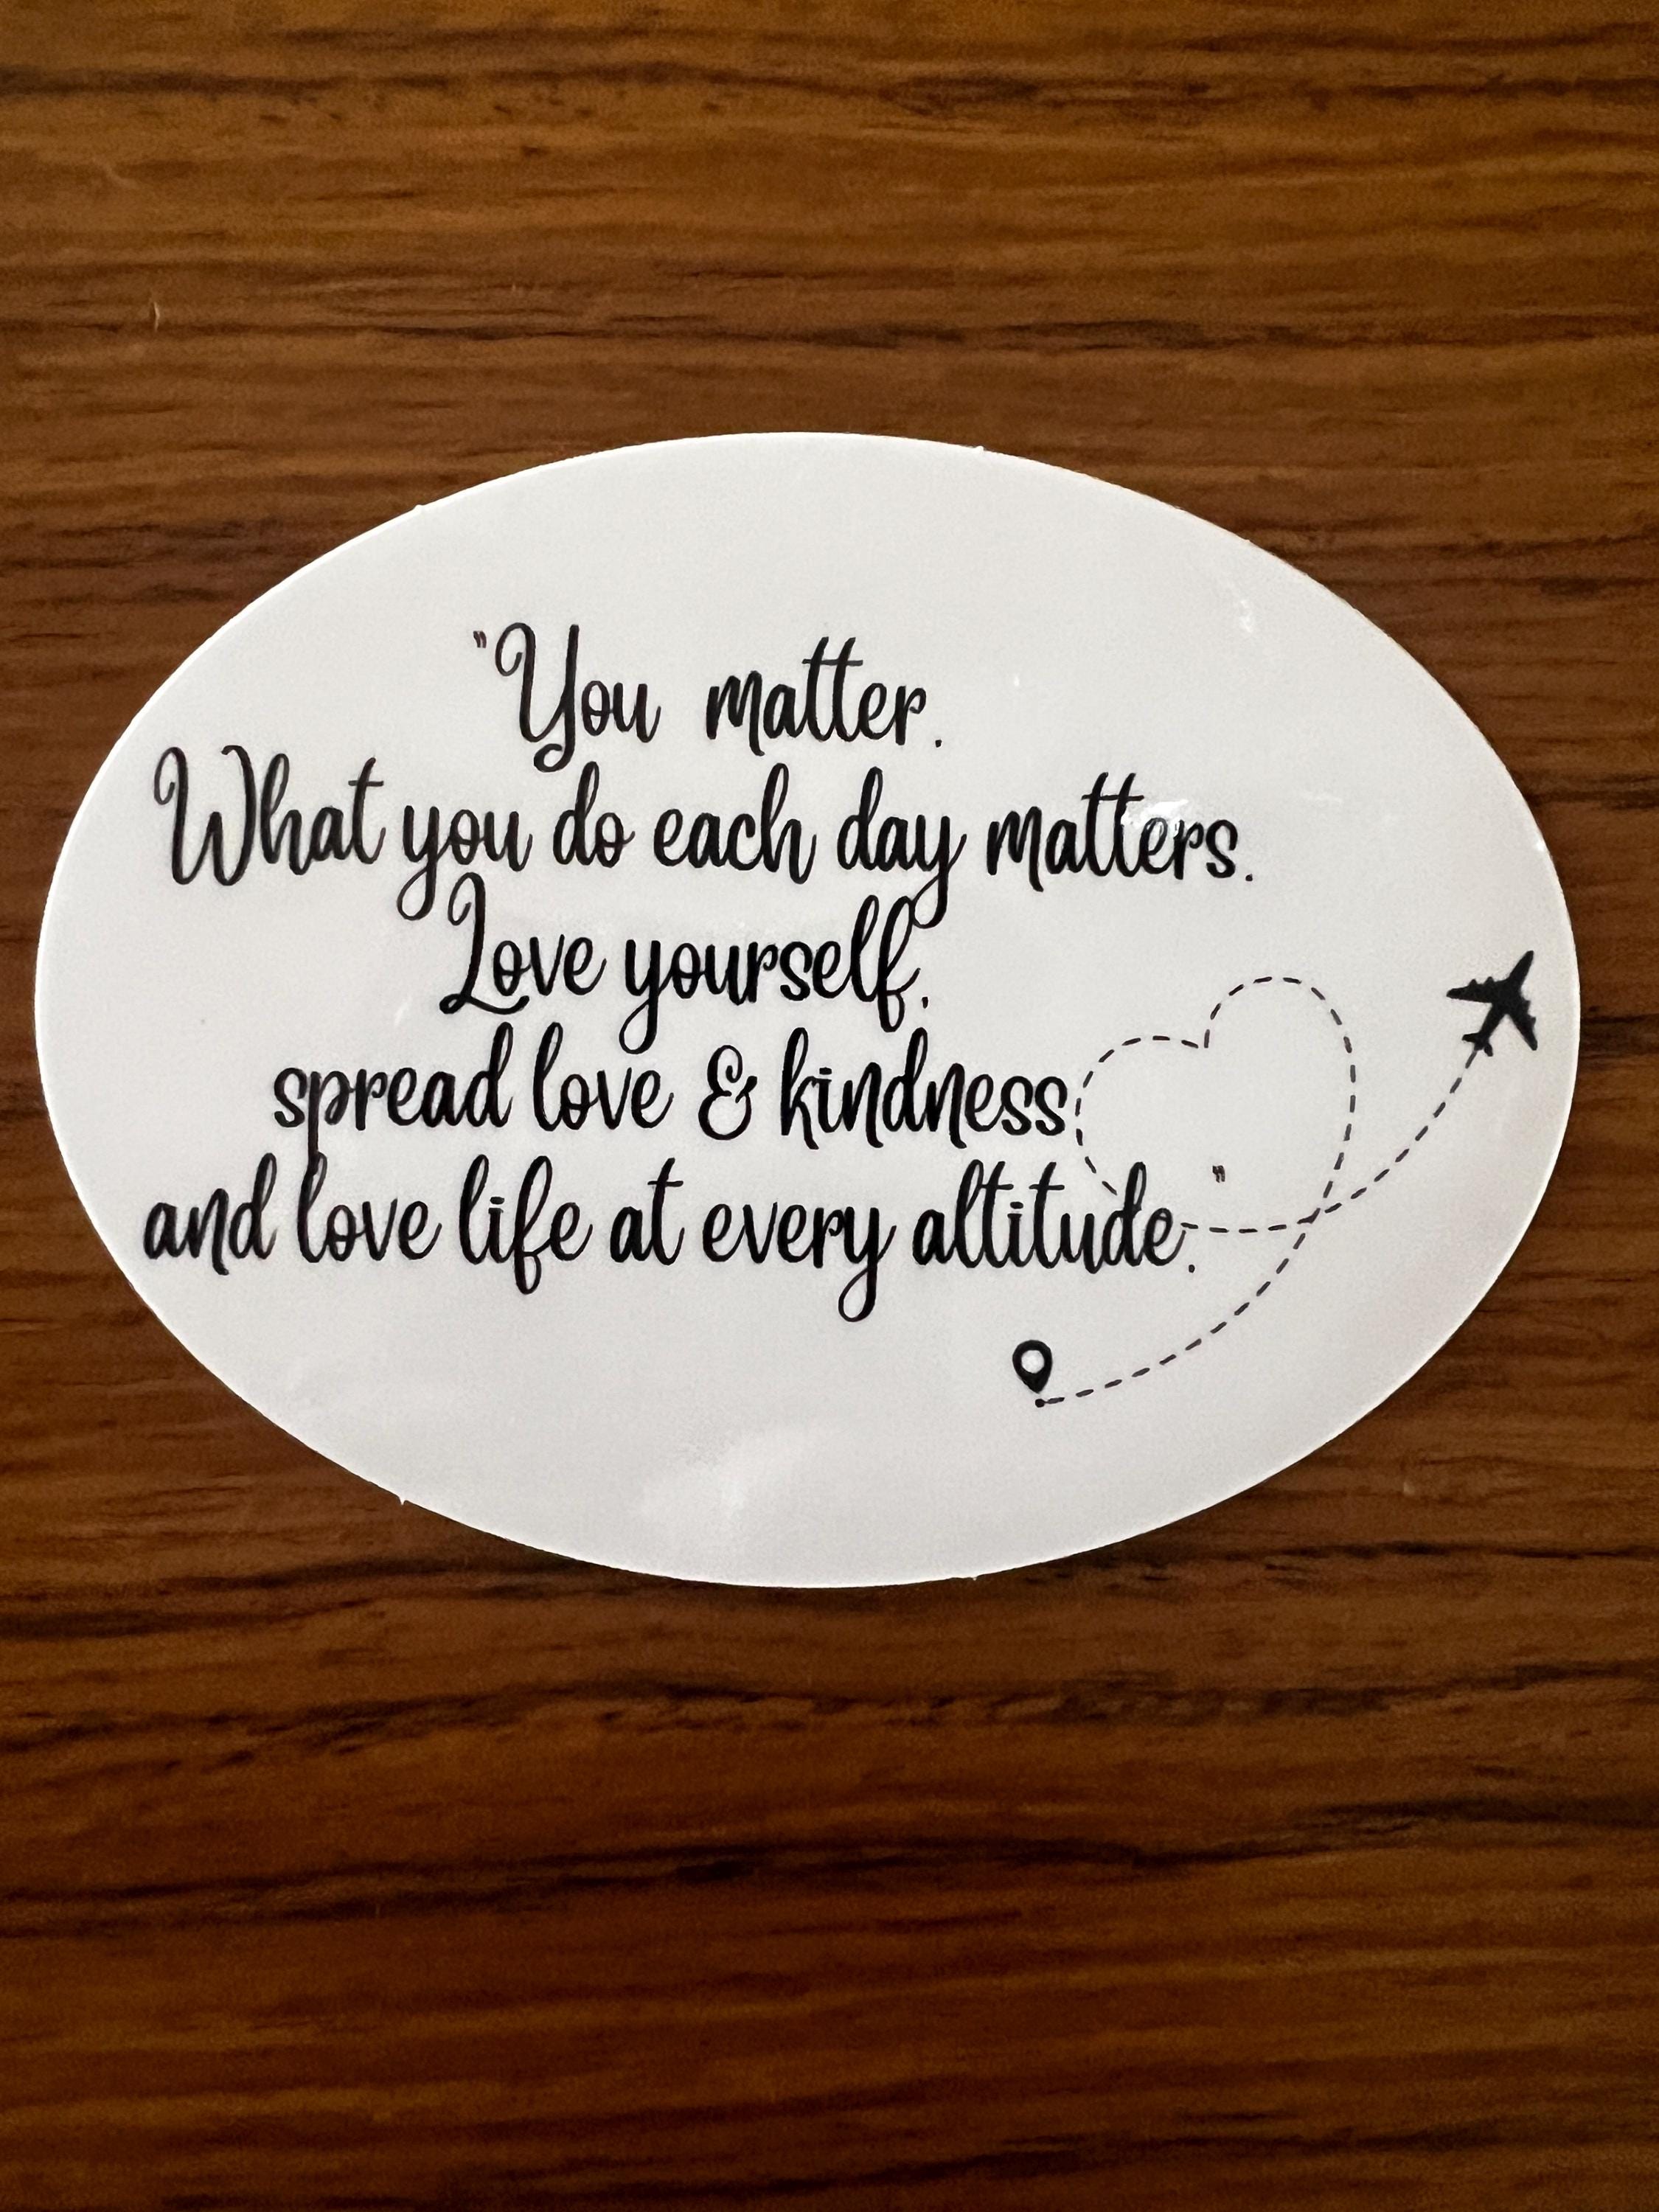 "You matter.
What you do each day matters.
Love yourself.
spread love & kindness
and love life at every altitude."